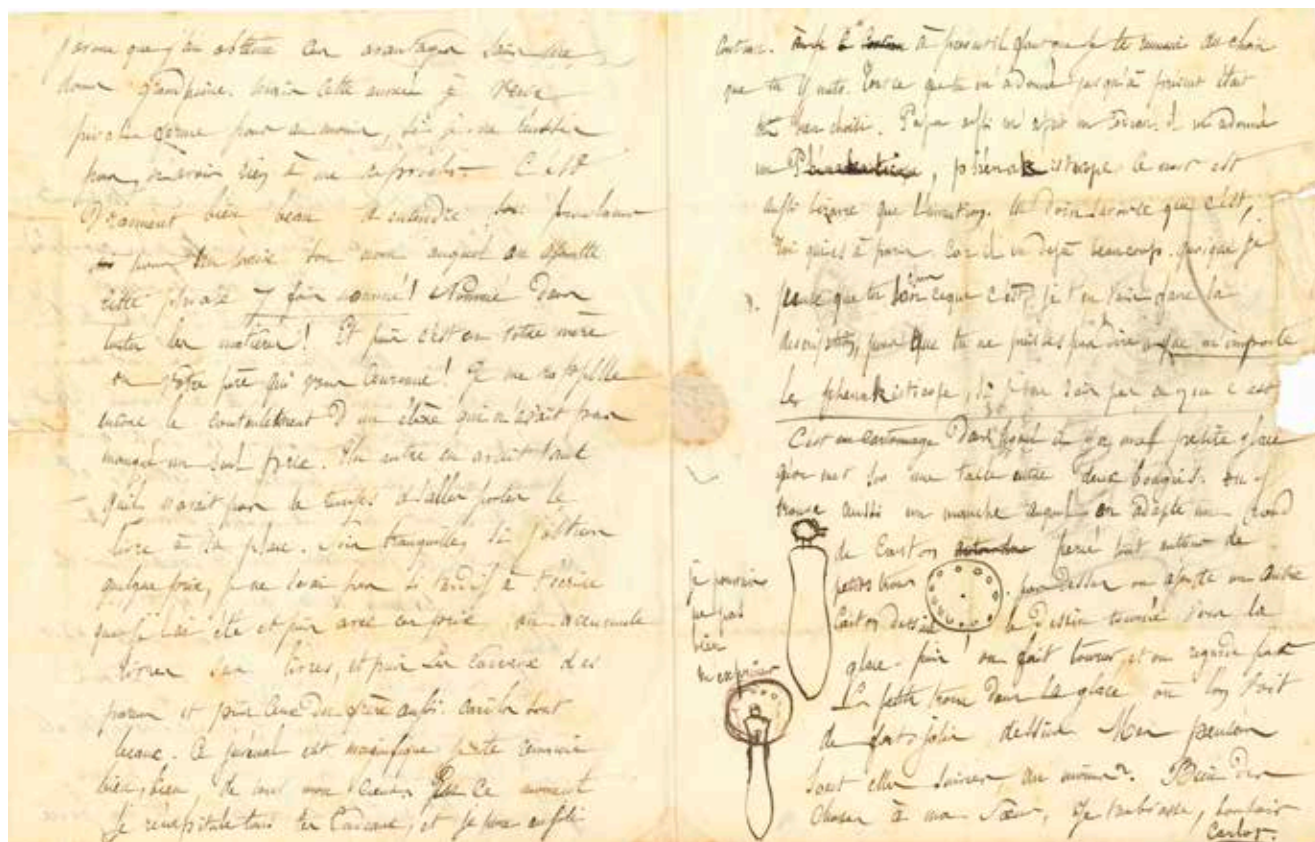 que j'en obtienne cer avantager sans me
donner grand peine. Mais cette année je veux
prix ou ferme pour au moins, si je ne l'obtien
pas, n'avoir rien à me reprocher. C'est
Vraiment bien beau d'entendre son proclamer
pour un prix son nom auguste
cette phrase 7 fois nommé! Nommé dans
toutes les matières! Et puis c'est ou votre mère
ou votre père qui vous couronne! Je me rappelle
encore le contentement d'un élève qui n'avait pas
manqué un seul prix. Un autre en avait tant
qu'il n'avait pas le temps d'aller porter le
livre à sa place. Sois tranquille si j'obtien
quelque prix, je ne serai pas si tardif à t'écrire
que je l'ai été et puis avec cer prix on accumule
livres sur livres, et puis les cadeaux des
parens et puis ceux du frère aussi.
beaux. Ce présent est magnifique je t'en remercie
bien, bien de tout mon cœur. En ce moment
Je récapitule tous tes Cadeaux, et je pense
à présent il faut que je te remercie du choix
que tu y mets. Tout ce que tu m'as donné jusqu'à présent était
bien choisi. Papa aussi m'a fait un Cadeau. Il m'a donné
un phénakisticope. Ce mot est
aussi bizarre que l'invention. Tu dois savoir ce que c'est,
toi qui es à paris. Car il y en a déjà beaucoup. Quoique je
pense que tu sais ce que c'est je t'en vais faire la
description, pour que tu ne puisses pas dire que m'importe
les phénakisticope, si je ne sais pas ce que c'est
C'est un cartonnage dans lequel il y a une petite glace
qu'on met sur une table entre deux bougies. On y
trouve aussi un manche auquel on adapte un rond
de Carton percé tout autour de
petits trous. par dessus on ajoute un autre
Carton dessiné le dessin tourné vers la
glace. puis on fait tourner, et on regarde par
les petits trous dans la glace où l'on voit
de forts jolis dessins. Mes pensées
sont elles suivies, au moins? Bien des
Choses à ma Sœur, Je t'embrasse, bonsoir
Carlos.
je pouvais
ne pas
bien
m'exprimer